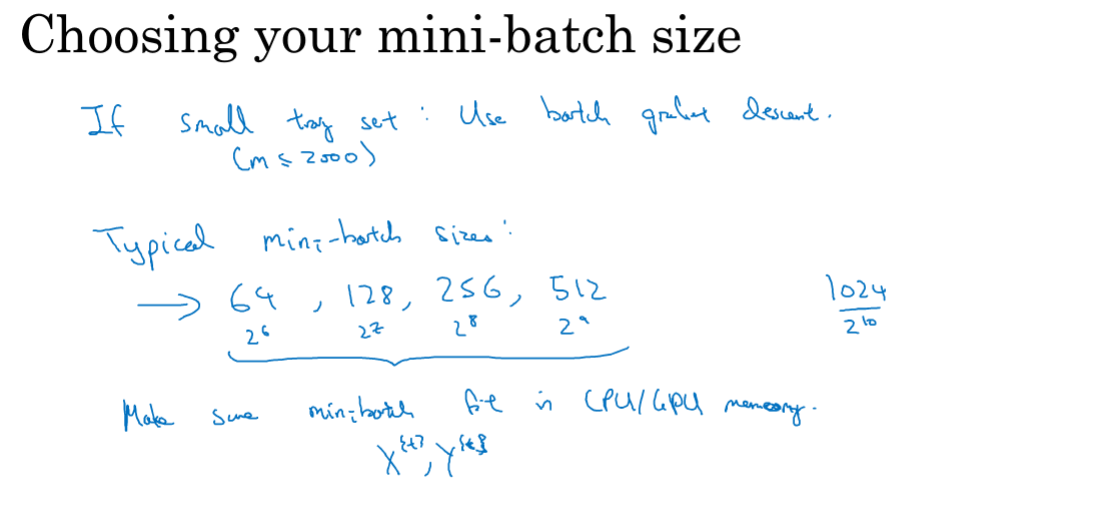 Choosing your mini-batch size
If small trag set : Use batch gradient descent.
(m ≤ 2000)
Typical mini-batch sizes :
→ 64 , 128, 256, 512 1024
2⁶ 2⁷ 2⁸ 2⁹ 2¹⁰
Make sure minibatch fit in CPU/GPU memory.
X^{t}, Y^{t}